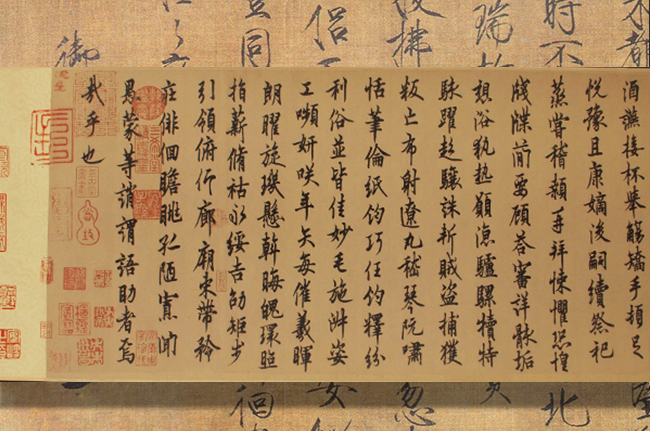 都
時不
瑞
拂
侶
同
御
酒讌接杯舉觴矯手頓足
悅豫且康嫡後嗣續祭祀
蒸嘗稽顙再拜悚懼恐惶
牋牒簡要顧答審詳骸垢
想浴執熱願涼驢騾犢特
駭躍超驤誅斬賊盜捕獲
叛亡布射遼丸嵇琴阮嘯
恬筆倫紙鈞巧任釣釋紛
利俗並皆佳妙毛施淑姿
工嚬妍咲年矢每催羲暉
朗曜旋璣懸斡晦魄環照
指薪脩祜永綏吉劭矩步
引領俯仰廊廟束帶矜
莊徘徊瞻眺孤陋寡聞
愚蒙等誚謂語助者焉
哉乎也
北
忽
徊